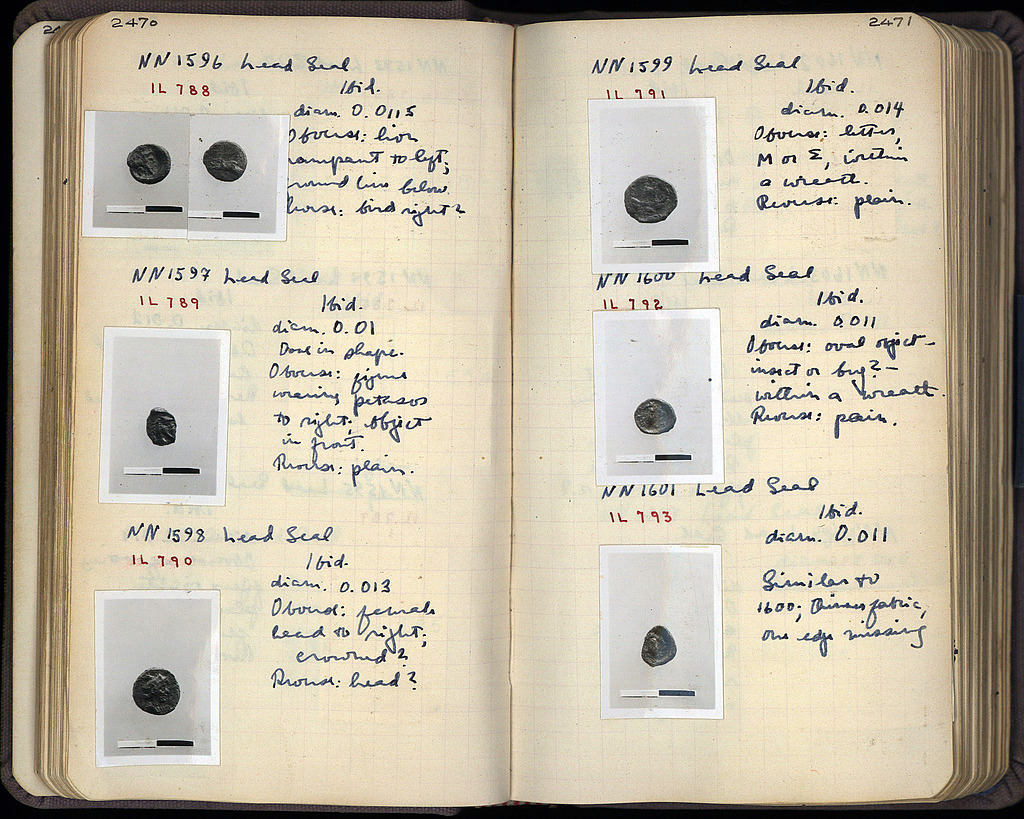 2470
NN 1596 Lead Seal
IL 788
Ibid.
diam. 0.0115
Obverse: lion
rampant to left;
round line below.
Reverse: bird right?
NN 1597 Lead Seal
IL 789
Ibid.
diam. 0.01
in shape.
Obverse: figure
wearing petasos
to right; object
in front.
Reverse: plain.
NN 1598 Lead Seal
IL 790
Ibid.
diam. 0.013
Obverse: female
head to right;
crowned?
Reverse: head?
2471
NN 1599 Lead Seal
IL 791
Ibid.
diam. 0.014
Obverse: letter,
M or Σ, within
a wreath.
Reverse: plain.
NN 1600 Lead Seal
IL 792
Ibid.
diam. 0.011
Obverse: oval object –
insect or bug? –
within a wreath.
Reverse: pain.
NN 1601 Lead Seal
IL 793
Ibid.
diam. 0.011
Similar to
1600; thinner fabric,
one edge missing